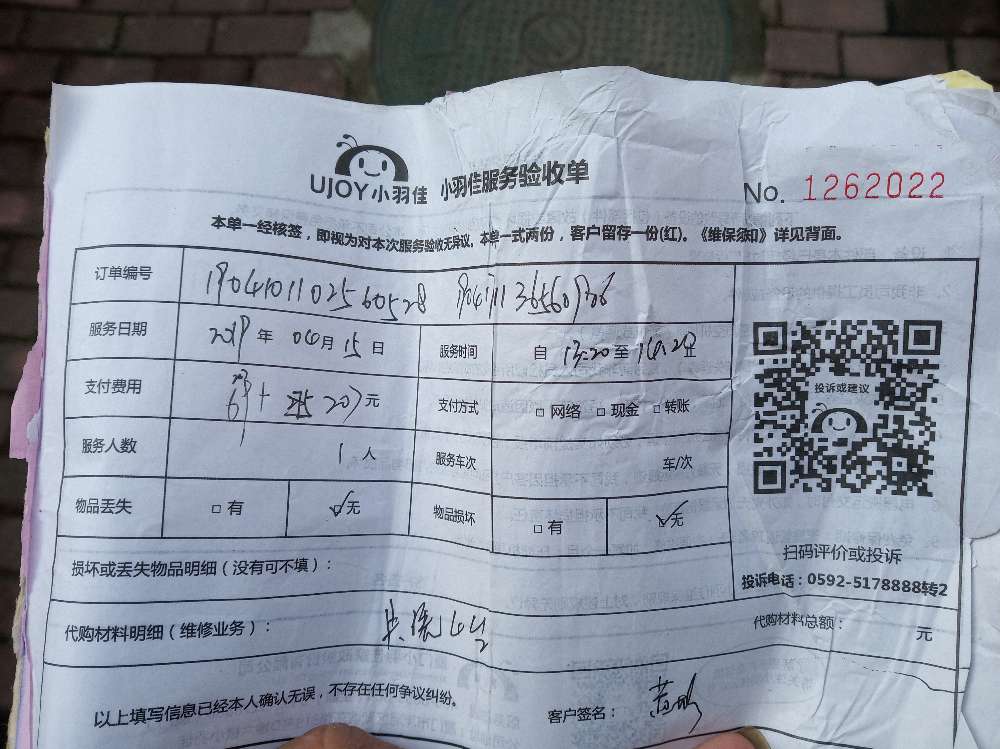 UJOY小羽佳 小羽佳服务验收单 No. 1262022
本单一经核签，即视为对本次服务验收无异议。本单一式两份，客户留存一份(红)。《维保须知》详见背面。
订单编号 1904101102560528
服务日期 2019年 04月 15日 服务时间 自 13:20至
支付费用 元 支付方式 □ 网络 □ 现金 □ 转账
服务人数 1人 服务车次 车/次
物品丢失 □ 有 ☑无 物品损坏 □ 有 ☑无
损坏或丢失物品明细（没有可不填）：
代购材料明细（维修业务）： 代购材料总额： 元
以上填写信息已经本人确认无误，不存在任何争议纠纷。 客户签名：
投诉或建议
扫码评价或投诉
投诉电话：0592-5178888转2